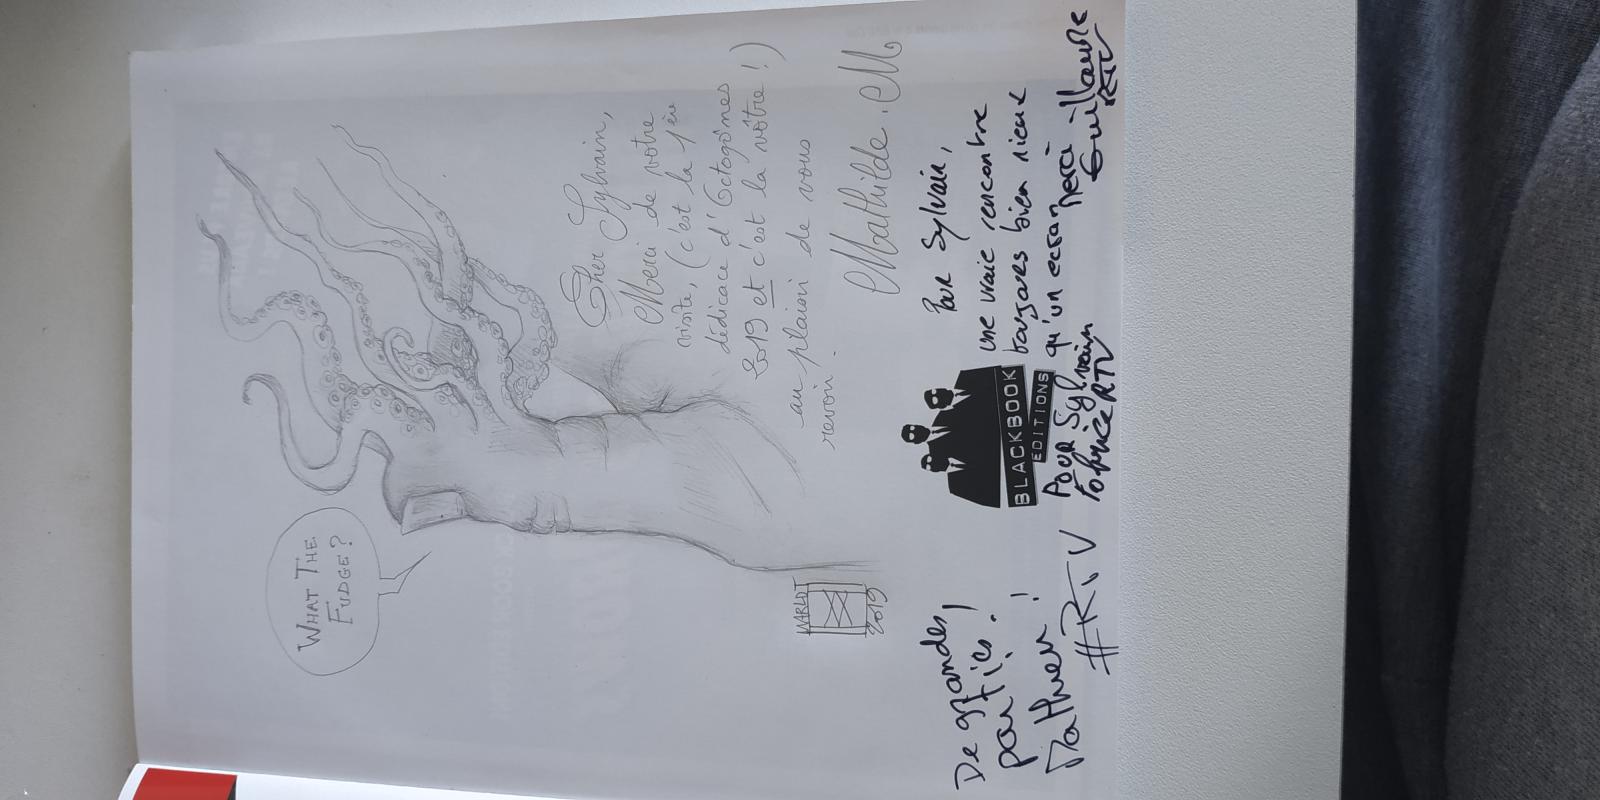 WHAT THE
FUDGE?
Cher Sylvain,
Merci de votre
visite, (c'est la 1ère
dédicace d'Octogônes
2019 et c'est la vôtre !)
au plaisir de vous
revoir.
Mathilde.M.
MARLOT
2019
De grandes
parties !
Mathieu !
#RTV
BLACKBOOK
EDITIONS
Pour Sylvain,
une vraie rencontre
toujours bien mieux
qu'un ecran
Merci
Guillaume
RTV
Pour Sylvain
Fabrice RTV